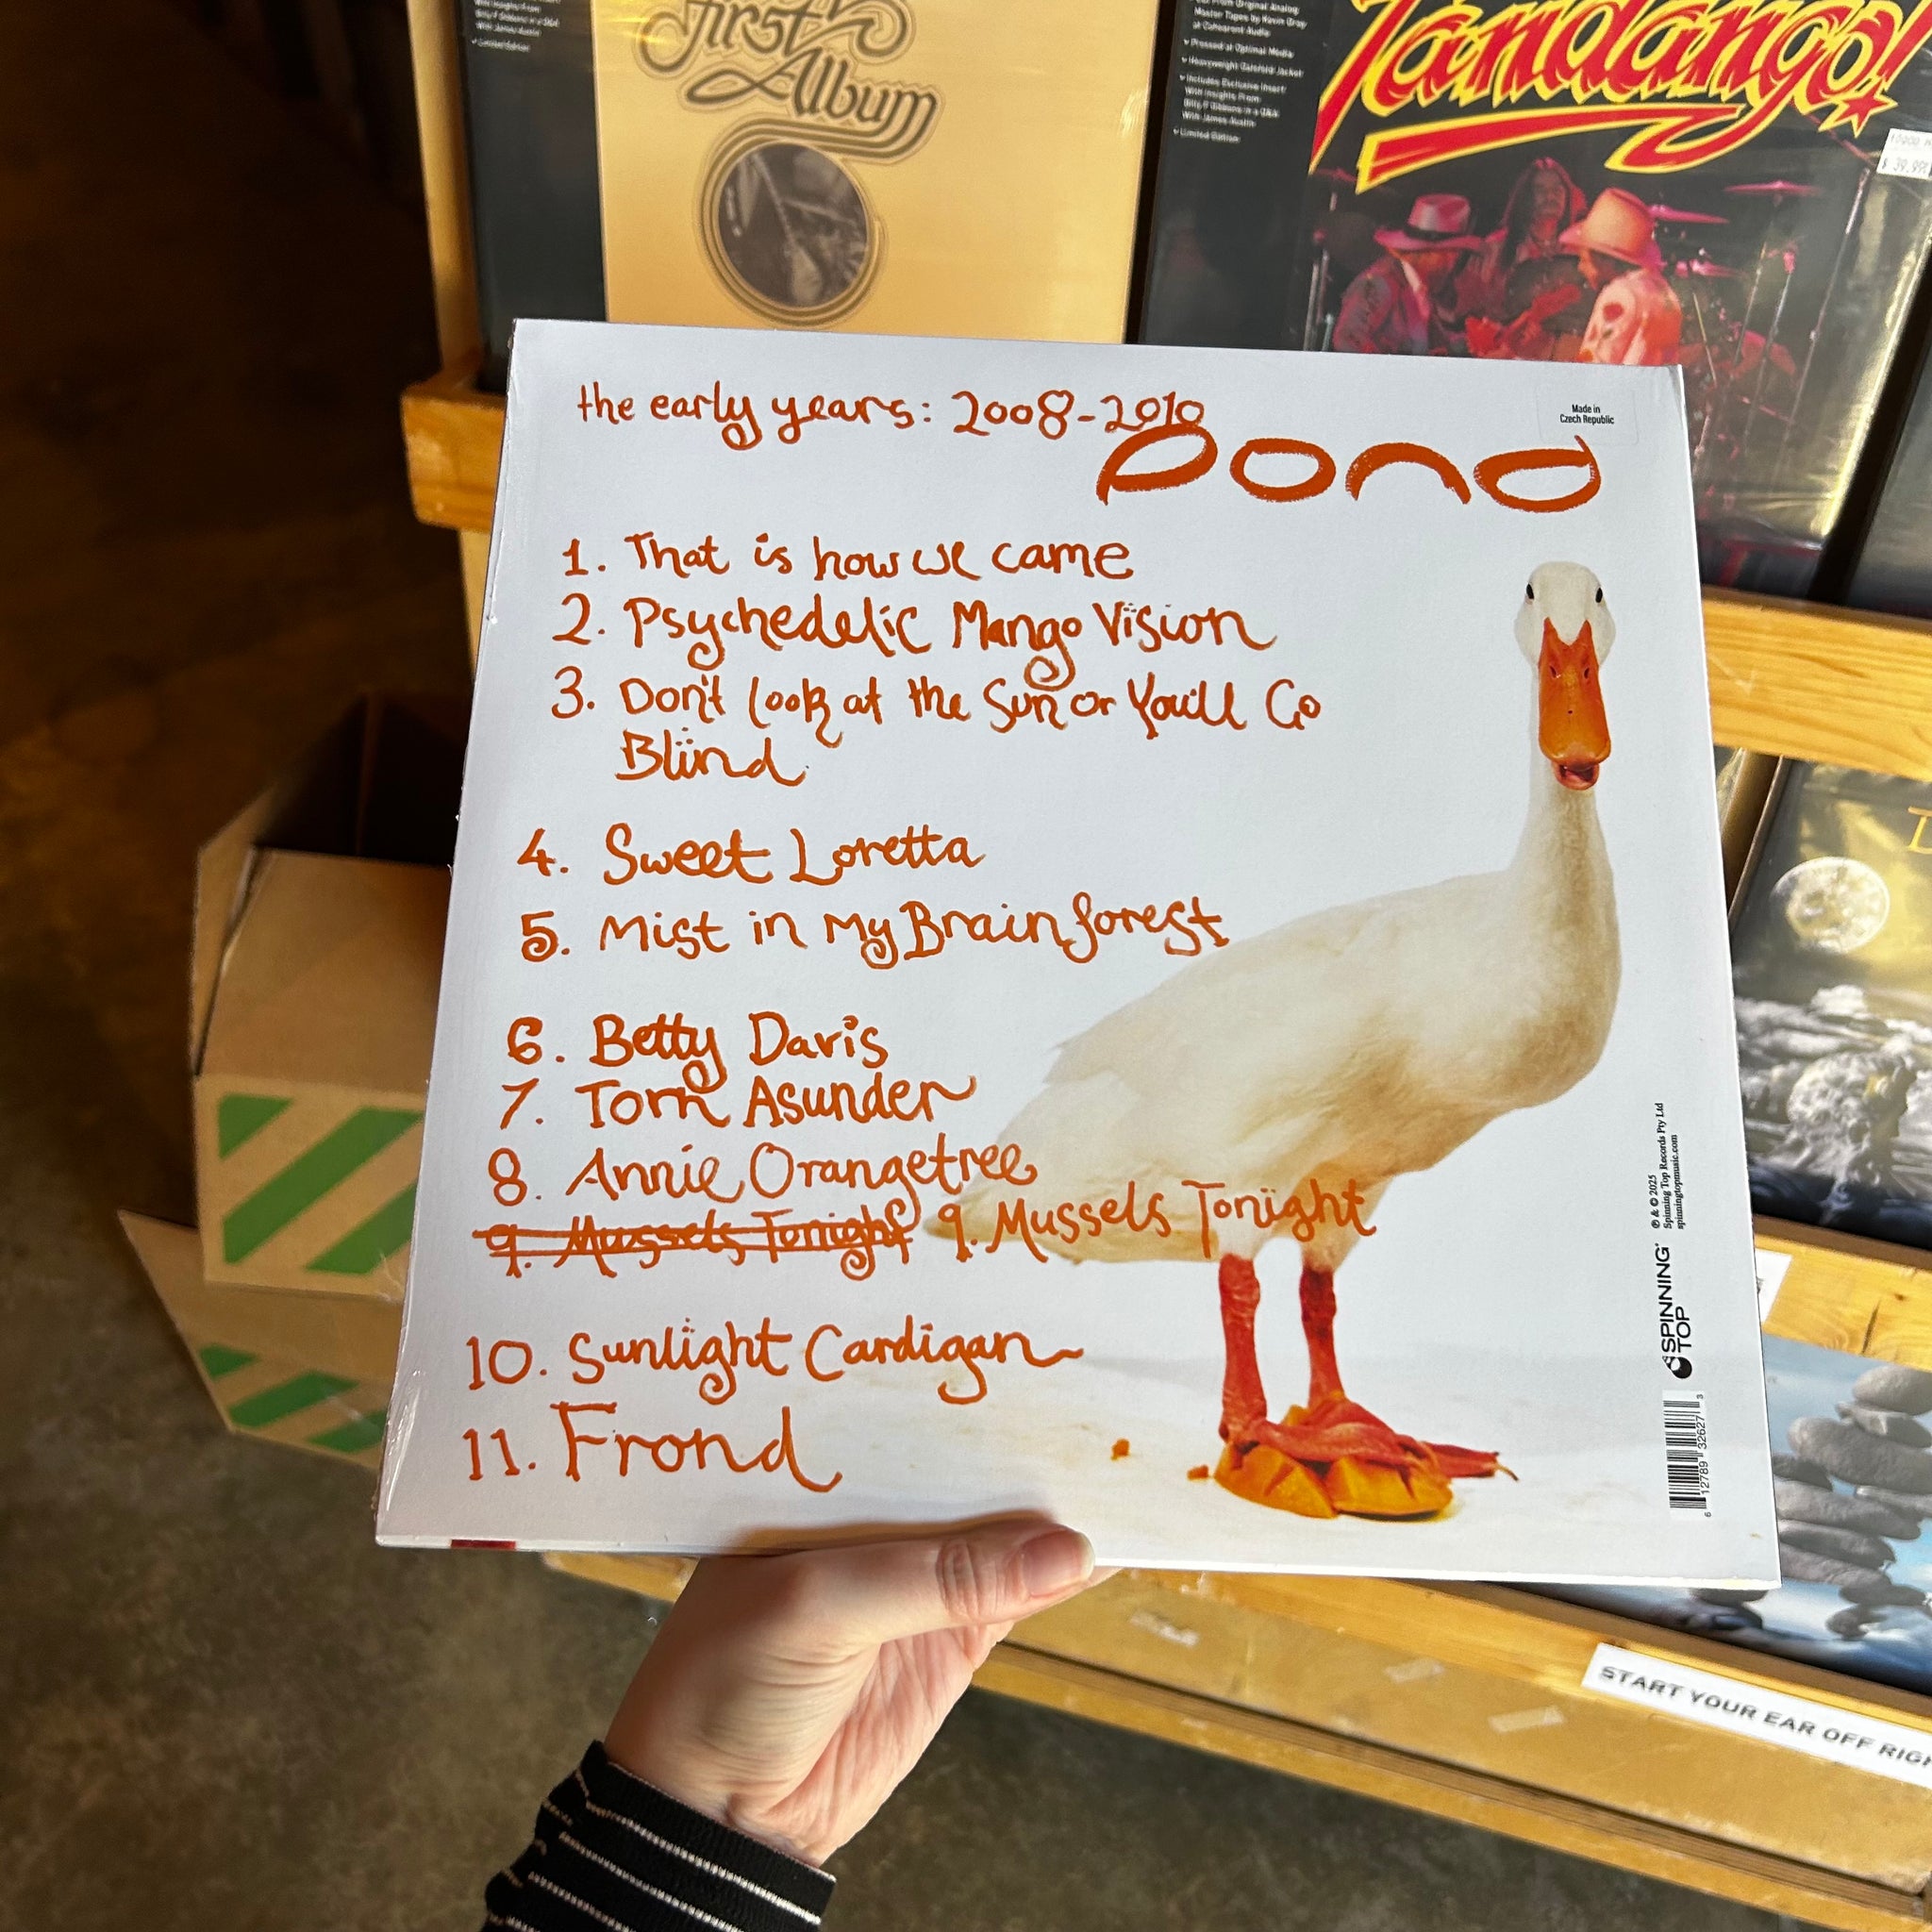 First
Album
With Insights From
Billy F Gibbons in a Q&A
With James Austin
Limited Edition
Master Tapes by Kevin Gray
at Cohearent Audio
Pressed at Optimal Media
Heavyweight Gatefold Jacket
Includes Exclusive Insert
With Insights From
Billy F Gibbons in a Q&A
With James Austin
Limited Edition
Fandango!
$ 39.99
the early years: 2008-2010
Made in
Czech Republic
pond
1. That is how we came
2. Psychedelic Mango Vision
3. Don't look at the Sun or You'll Go
Blind
4. Sweet Loretta
5. Mist in My Brainforest
6. Betty Davis
7. Torn Asunder
8. Annie Orangetree
9. Mussels Tonight 9. Mussels Tonight
10. Sunlight Cardigan
11. Frond
℗ & © 2025
Spinning Top Records Pty Ltd
spinningtopmusic.com
SPINNING
TOP
6 12789 32627 3
START YOUR EAR OFF RIGH